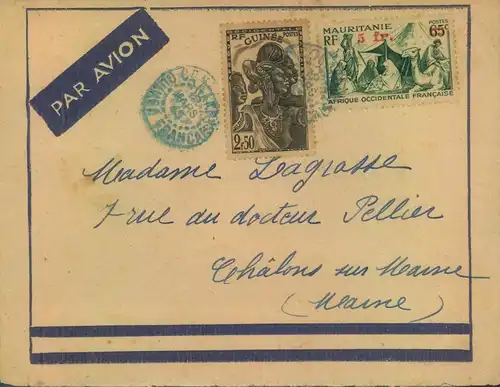 PAR AVION
RF GUINÉE POSTES
2F50
MAURITANIE
POSTES
RF 5 fr. 65c
AFRIQUE OCCIDENTALE FRANÇAISE
FRANÇAIS
Madame Lagrosse
7 rue du docteur Pellier
Châlons sur Marne
(Marne)